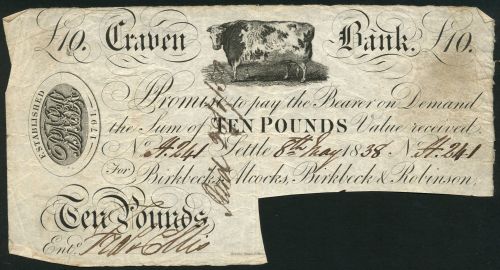 £10. Craven Bank. £10.
ESTABLISHED 1791
I Promise to pay the Bearer on Demand
the Sum of TEN POUNDS Value received
No. A.241 Settle 8th May 1838 No. A.241
For Birkbeck, Alcocks, Birkbeck & Robinson,
Ten Pounds
Entd.